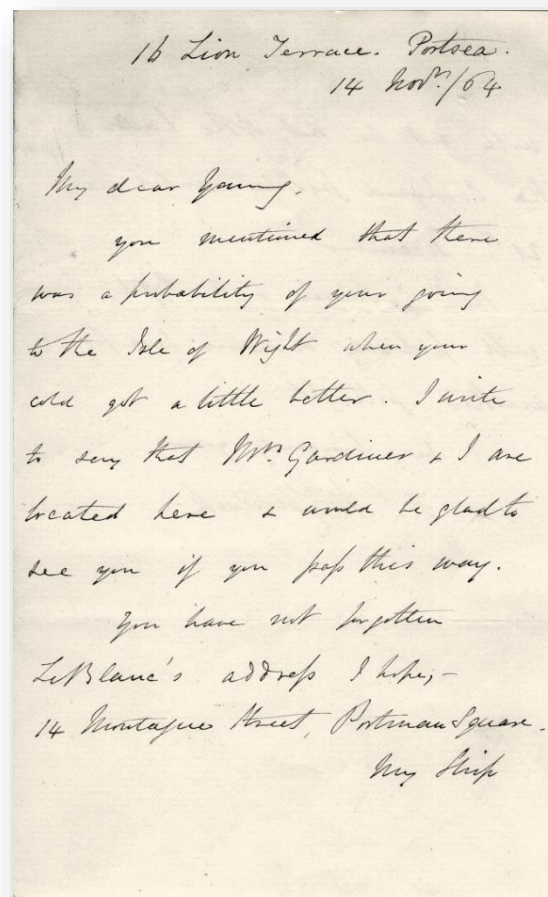 16 Lion Terrace. Portsea.
14 Novr./64
My dear Young.
you mentioned that there
was a probability of your going
to the Isle of Wight when your
cold got a little better. I write
to say that Mrs. Gardiner & I are
located here & would be glad to
see you if you pass this way.
You have not forgotten
LeBlanc's address I hope,-
14 Montague Street, Portman Square.
My Ship